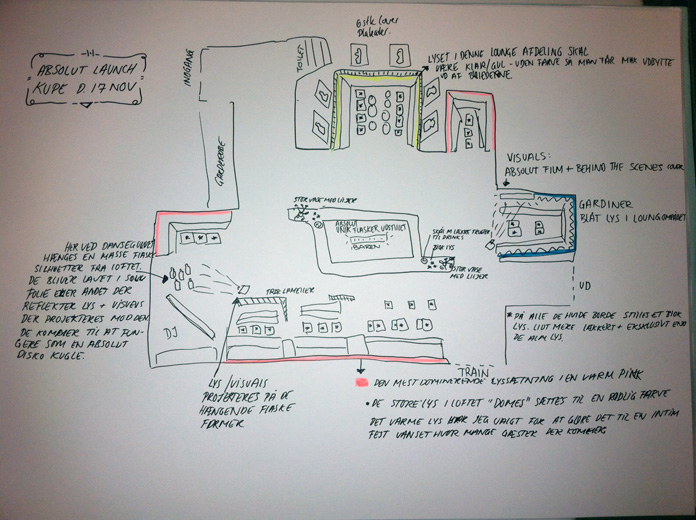 6 stk cover
Plakater.
ABSOLUT LAUNCH
KUPE D. 17 NOV
INDGANG
TOILET
LYSET I DENNE LOUNGE AFDELING SKAL
VÆRE KLAR/GUL - UDEN FARVE SÅ MAN FÅR MAX UDBYTTE
UD AF BILLEDERNE.
GARDEROBE
VISUALS:
ABSOLUT FILM + BEHIND THE SCENES
GARDINER
BLÅT LYS I LOUNGEOMRÅDET
STOR VASE MED LILJER
ABSOLUT
UNIK FLASKER UDSTILLET
BAREN
TIL DRINKS
BLOK LYS
STOR VASE
MED LILJER
UD
HER VED DANSEGULVET
HÆNGES EN MASSE FLASKE
SILHUETTER FRA LOFTET.
DE BLIVER LAVET I SØLV
FOLIE ELLER ANDET DER
REFLEKTER LYS + VISUELS
DER PROJEKTERES MOD DEM
DE KOMMER TIL AT FUN-
GERE SOM EN ABSOLUT
DISKO KUGLE.
DJ
TRÆ LAMELLER
* PÅ ALLE DE HVIDE BORDE STILLES ET BLOK
LYS. LIDT MERE LÆKKERT + EKSKLUSIVT END
DE ALM LYS.
TRAIN
LYS/VISUALS
PROJEKTERES PÅ DE
HÆNGENDE FLASKE
FORMER
DEN MEST DOMINERENDE LYSSÆTNING I EN VARM PINK
• DE STORE LYS I LOFTET "DOMES" SÆTTES TIL EN RØDLIG FARVE
DET VARME LYS HAR JEG VALGT FOR AT GLØRE DET TIL EN INTIM
FEST UANSET HVOR MANGE GÆSTER DER KOMMER